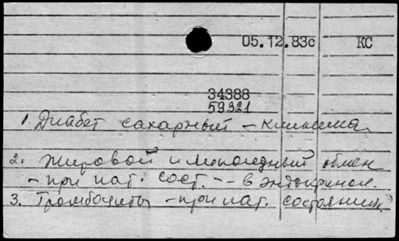 05.12.83с КС
34388
59321
1. Диабет сахарный - клиника
2. Жировой и липоидный обмен
- при пат. сост. - в эндокринол.
3. Тромбоциты - при пат. состояниях